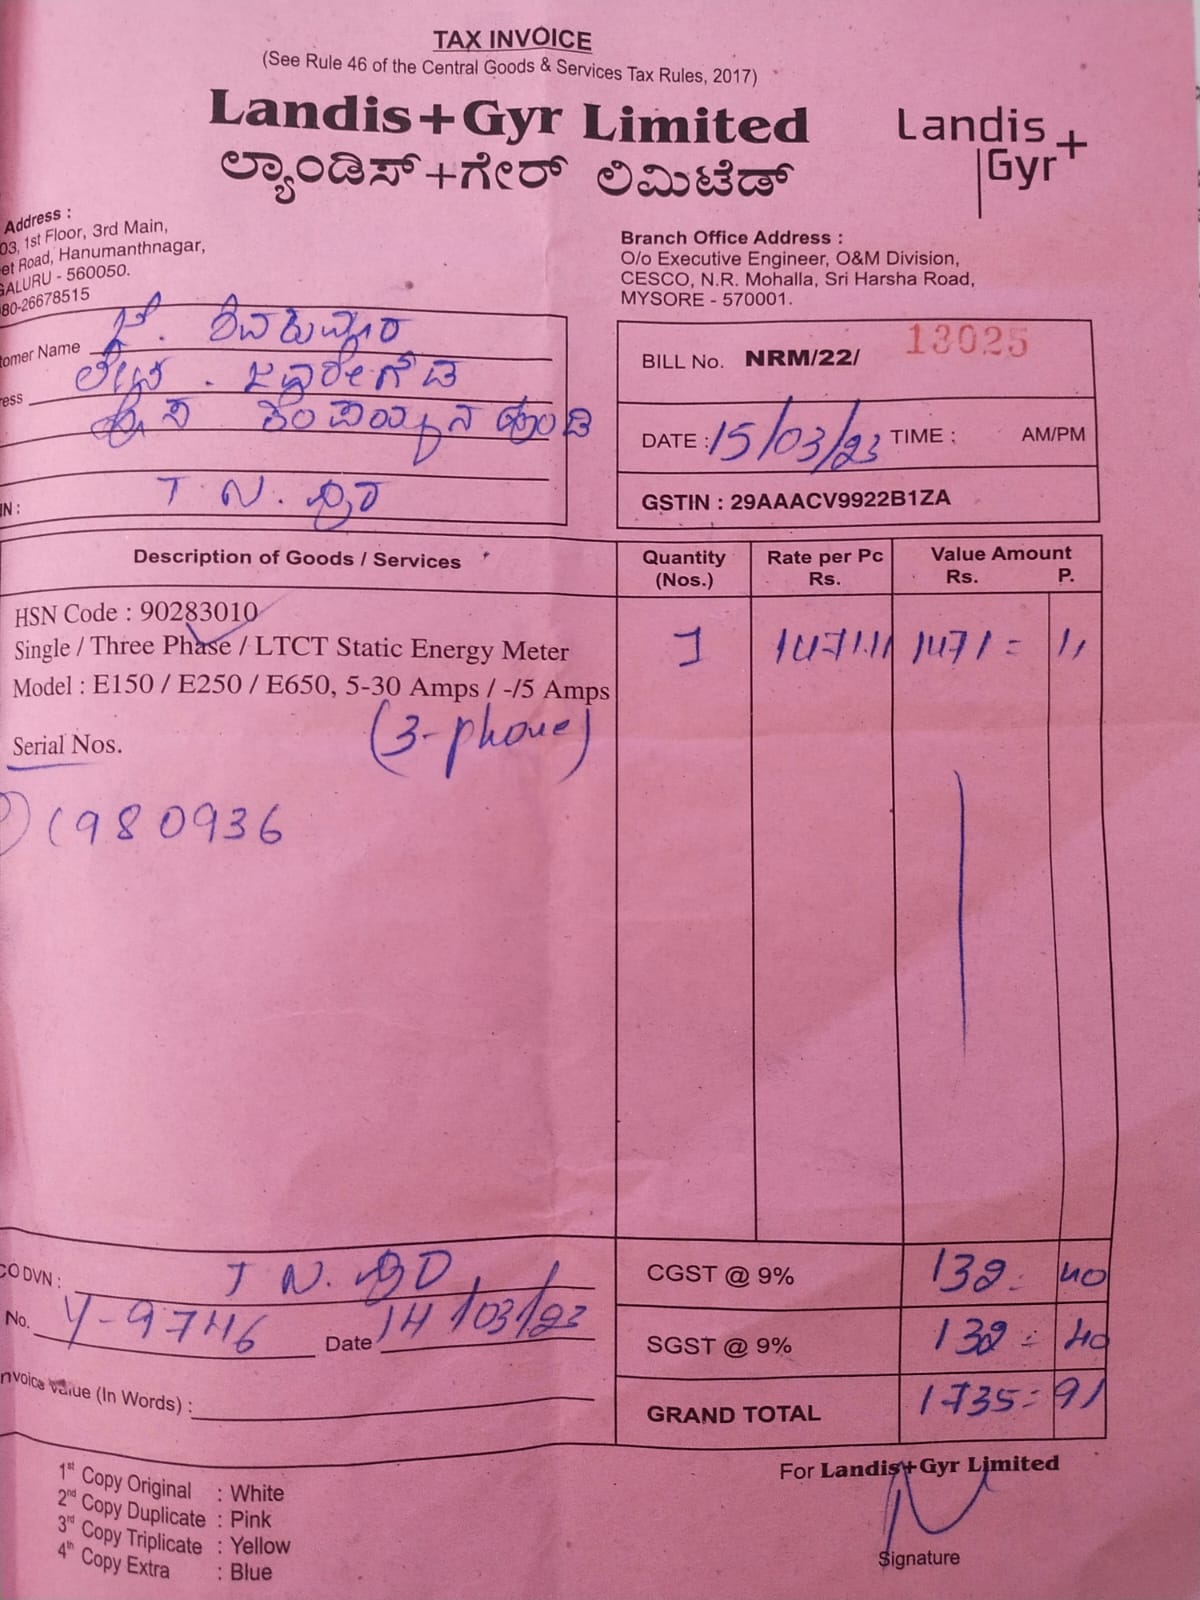 TAX INVOICE
(See Rule 46 of the Central Goods & Services Tax Rules, 2017)
Landis+Gyr Limited
ಲ್ಯಾಂಡಿಸ್+ಗೇರ್ ಲಿಮಿಟೆಡ್
Landis+
Gyr
Address :
03, 1st Floor, 3rd Main,
et Road, Hanumanthnagar,
GALURU - 560050.
80-26678515
Branch Office Address :
O/o Executive Engineer, O&M Division,
CESCO, N.R. Mohalla, Sri Harsha Road,
MYSORE - 570001.
tomer Name ಶಿವಕುಮಾರ
ress ಲೇಟ್. ಜವರೇಗೌಡ
IN : T N. ಪುರ
BILL No. NRM/22/ 13025
DATE : 15/03/23 TIME : AM/PM
GSTIN : 29AAACV9922B1ZA
Description of Goods / Services Quantity (Nos.) Rate per Pc Rs. Value Amount Rs. P.
HSN Code : 90283010
Single / Three Phase / LTCT Static Energy Meter 1 1471.11 1471 = 11
Model : E150 / E250 / E650, 5-30 Amps / -/5 Amps
(3-phase)
Serial Nos.
1980936
CO DVN : T N. ಪುರ
No. Y-9746 Date 14/03/23
nvoice Value (In Words) :
CGST @ 9% 132 = 40
SGST @ 9% 132 = 40
GRAND TOTAL 1735 = 91
1st Copy Original : White
2nd Copy Duplicate : Pink
3rd Copy Triplicate : Yellow
4th Copy Extra : Blue
For Landis+Gyr Limited
Signature